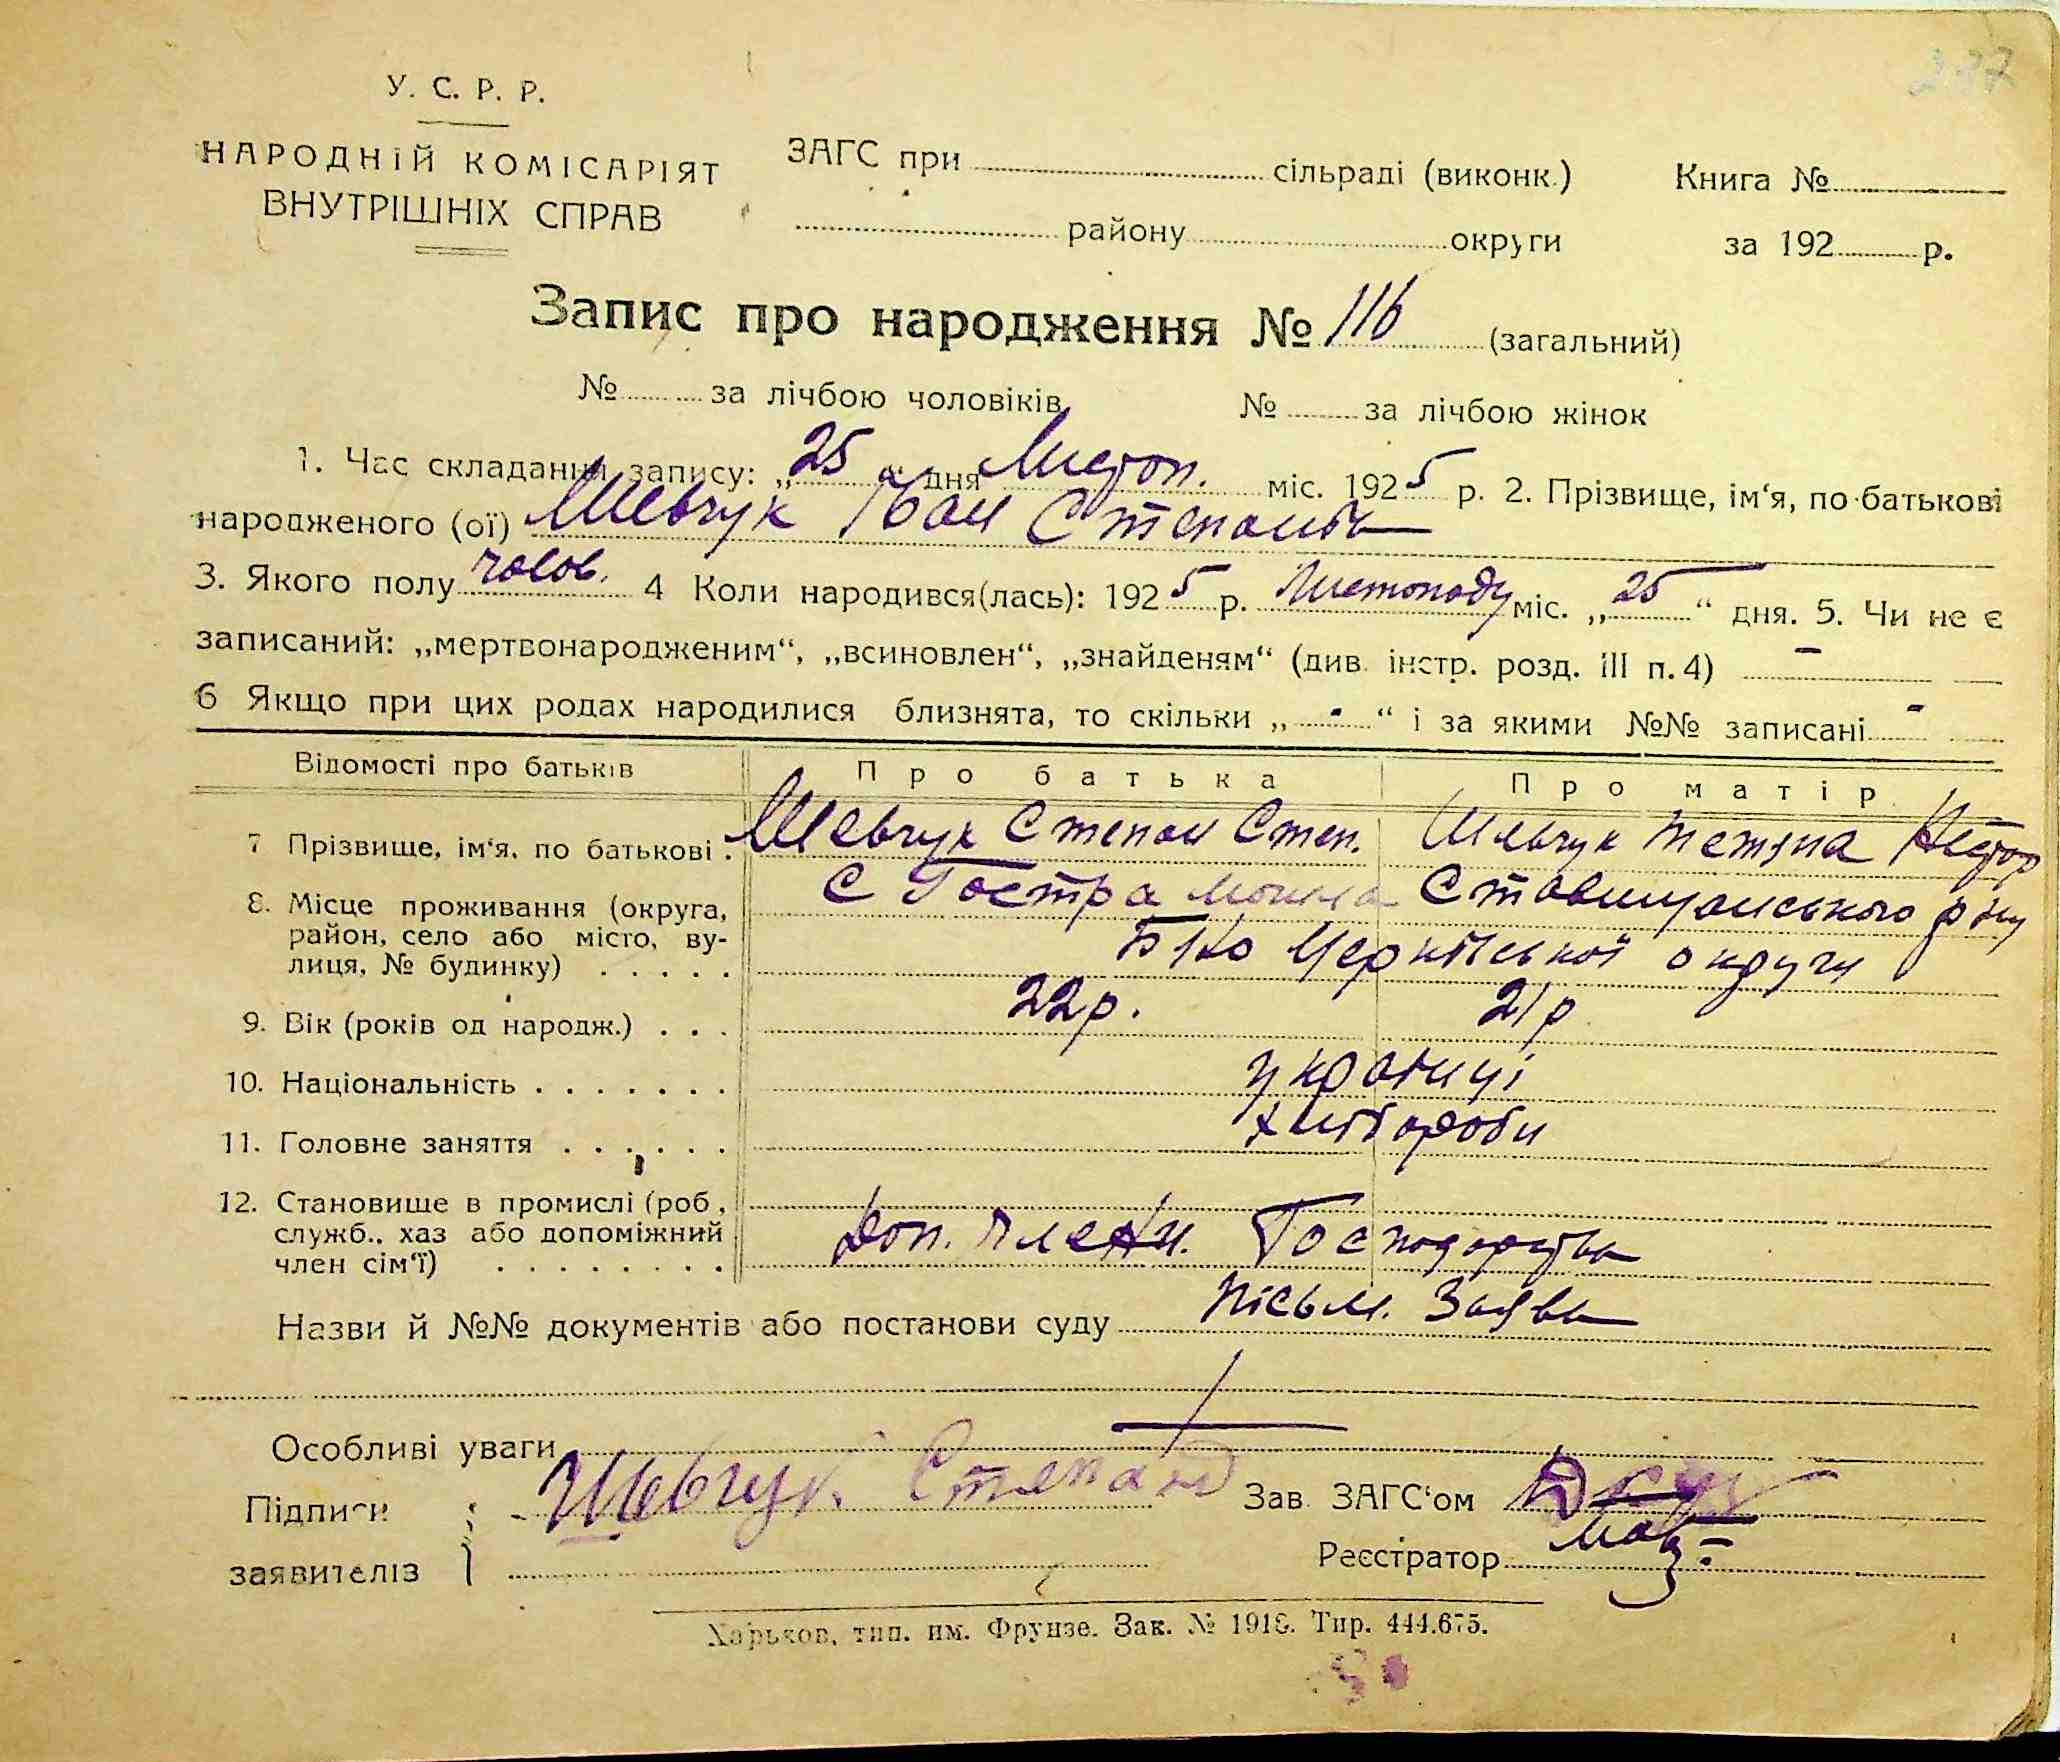 237
У. С. Р. Р.
НАРОДНІЙ КОМІСАРІЯТ
ВНУТРІШНІХ СПРАВ
ЗАГС при сільраді (виконк.)
району округи
Книга №
за 192 р.
Запис про народження № 116 (загальний)
№ за лічбою чоловіків № за лічбою жінок
1. Час складання запису: „25“ дня Листоп. міс. 1925 р. 2. Прізвище, ім'я, по-батькові
народженого (ої) Шевчук Іван Степанов
3. Якого полу чолов. 4 Коли народився(лась): 1925 р. Листопаду міс. „25“ дня. 5. Чи не є
записаний: „мертвонародженим“, „всиновлен“, „знайденям“ (див. інстр. розд. III п. 4) –
6 Якщо при цих родах народилися близнята, то скільки „ - “ і за якими №№ записані -
Відомості про батьків Про батька Про матір
7 Прізвище, ім'я, по батькові. Шевчук Степан Степ. Шевчук Тетяна Нестор
8. Місце проживання (округа, С Гостра Могила Ставищанського р-ну
район, село або місто, ву-
лиця, № будинку) . . . . . Б/Ко Церківської округи
9. Вік (років од народж.) . . . 22 р. 21 р
10. Національність . . . . . . . українці
11. Головне заняття . . . . . . хлібороби
12. Становище в промислі (роб.,
служб., хаз або допоміжний Доп. члени. Господарства
член сім'ї) . . . . . . . .
Назви й №№ документів або постанови суду Письм. Заява
Особливі уваги
Підписи Шевчук Степан Зав. ЗАГС'ом
заявителів Реєстратор
Харьков, тип. им. Фрунзе. Зак. № 1918. Тир. 444.675.